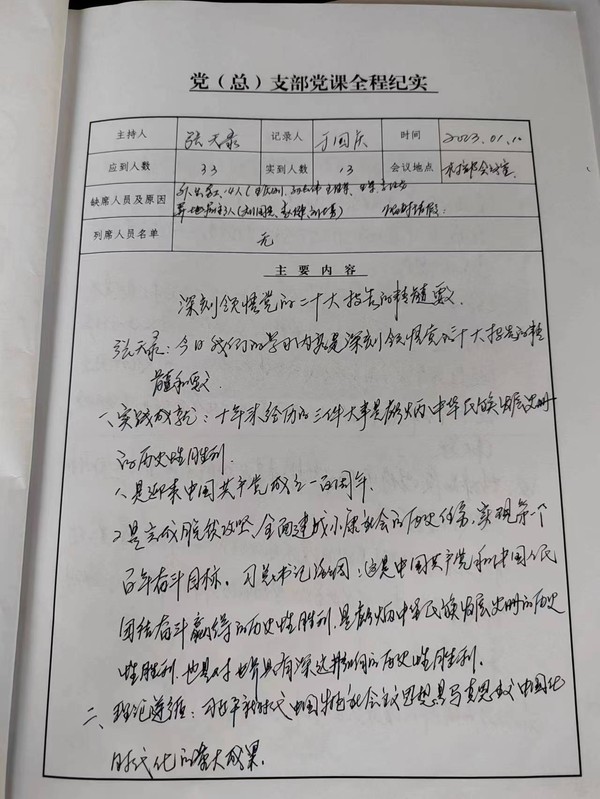 党（总）支部党课全程纪实
主持人 张天录 记录人 于国庆 时间 2023.01.10
应到人数 33 实到人数 13 会议地点 会议室
缺席人员及原因
列席人员名单 无
主要内容
深刻领悟党的二十大报告的精髓要
张天录：今日我们的学习内容是深刻领悟党的二十大报告的精
髓和要
一、实践成就：十年来经历的三件大事是彪炳中华民族发展史册
的历史性胜利.
1.是迎来中国共产党成立一百周年.
2.是完成脱贫攻坚、全面建成小康社会的历史任务，实现第一个
百年奋斗目标. 习总书记强调：这是中国共产党和中国人民
团结奋斗赢得的历史性胜利，是彪炳中华民族发展史册的历史
性胜利，也是对世界具有深远影响的历史性胜利.
二、理论遵循：习近平新时代中国特色社会主义思想是马克思主义中国化
时代化的重大成果.